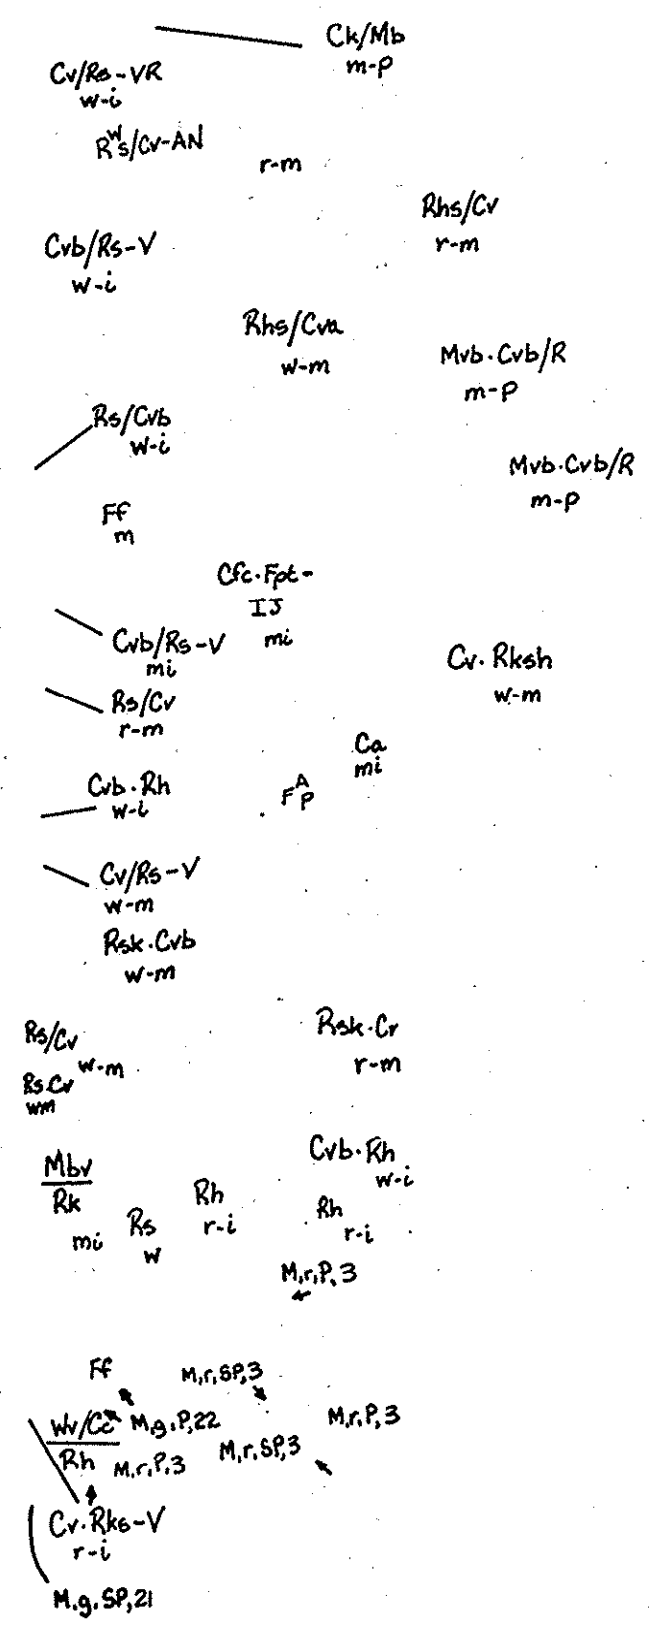 Ck/Mb
m-p
Cv/Rs-VR
w-i
Rws/Cv-AN
r-m
Rhs/Cv
r-m
Cvb/Rs-V
w-i
Rhs/Cva
w-m
Mvb.Cvb/R
m-p
Rs/Cvb
w-i
Mvb.Cvb/R
m-p
Ff
m
Cfc.Fpt-
IJ
mi
Cvb/Rs-V
mi
Cv.Rksh
w-m
Rs/Cv
r-m
Ca
mi
Cvb.Rh
w-i
FAp
Cv/Rs-V
w-m
Rsk.Cvb
w-m
Rs/Cv
w-m
Rsk.Cr
r-m
Rs.Cv
wm
Cvb.Rh
w-i
Mbv
Rk
mi
Rs
w
Rh
r-i
Rh
r-i
M,r,P,3
Ff
M,r,SP,3
Wv/Cc
M.g.P,22
M,r,P,3
Rh
M,r,P,3
M,r,SP,3
Cv.Rks-V
r-i
M.g.SP,21